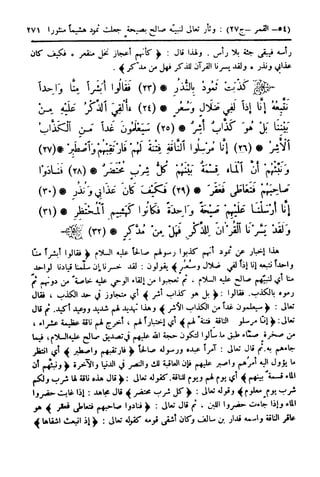 (٥٤ – القمر – ج٢٧) : وثأر تعالى لنبيّه صالح بصيحة جعلت ثمود هشيماً منثورا ٢٧١
رأسه فيبقى جثة بلا رأس . ولهذا قال : ﴿ كأنهم أعجاز نخل منقعر ٭ فكيف كان
عذابي ونذر ٭ ولقد يسرنا القرآن للذكر فهل من مدكر ﴾ .
كَذَّبَتْ ثَمُودُ بِالنُّذُرِ (٢٣) فَقَالُوا أَبَشَرًا مِنَّا وَاحِدًا
نَتَّبِعُهُ إِنَّا إِذًا لَفِي ضَلَالٍ وَسُعُرٍ (٢٤) أَأُلْقِيَ الذِّكْرُ عَلَيْهِ مِنْ
بَيْنِنَا بَلْ هُوَ كَذَّابٌ أَشِرٌ (٢٥) سَيَعْلَمُونَ غَدًا مَنِ الْكَذَّابُ
الْأَشِرُ (٢٦) إِنَّا مُرْسِلُوا النَّاقَةِ فِتْنَةً لَهُمْ فَارْتَقِبْهُمْ وَاصْطَبِرْ (٢٧)
وَنَبِّئْهُمْ أَنَّ الْمَاءَ قِسْمَةٌ بَيْنَهُمْ كُلُّ شِرْبٍ مُحْتَضَرٌ (٢٨) فَنَادَوْا
صَاحِبَهُمْ فَتَعَاطَى فَعَقَرَ (٢٩) فَكَيْفَ كَانَ عَذَابِي وَنُذُرِ (٣٠)
إِنَّا أَرْسَلْنَا عَلَيْهِمْ صَيْحَةً وَاحِدَةً فَكَانُوا كَهَشِيمِ الْمُحْتَظِرِ (٣١)
وَلَقَدْ يَسَّرْنَا الْقُرْآنَ لِلذِّكْرِ فَهَلْ مِنْ مُدَّكِرٍ (٣٢)
هذا إخبار عن ثمود أنهم كذبوا رسولهم صالحاً عليه السلام ﴿ فقالوا أبشراً منا
واحداً نتبعه إنا إذاً لفي ضلال وسعُر ﴾ يقولون : لقد خسرنا إن سلمنا قيادنا لواحد
منا أي لنبيّهم صالح عليه السلام . ثم تعجبوا من إلقاء الوحي عليه خاصة من دونهم ثم
رموه بالكذب . فقالوا : ﴿ بل هو كذاب أشر ﴾ أي متجاوز في حد الكذب ، فقال
تعالى : ﴿ سيعلمون غداً من الكذاب الأشر ﴾ وهذا تهديد لهم شديد ووعيد أكيد . ثم قال
تعالى : ﴿ إنا مرسلو الناقة فتنة لهم ﴾ أي إختباراً لهم ، أخرج لهم ناقة عظيمة عشراء ،
من صخرة صمّاء طبق ما سألوا لتكون حجة الله عليهم في تصديق صالح عليه السلام ، فيما
جاءهم به . ثم قال تعالى : آمراً عبده ورسوله صالحاً ﴿ فارتقبهم واصطبر ﴾ أي انتظر
ما يؤول إليه أمرهم واصبر عليهم فإن العاقبة لك والنصر في الدنيا والآخرة ﴿ ونبئهم أن
الماء قسمة بينهم ﴾ أي يوم لهم ويوم للناقة . كقوله تعالى : ﴿ قال هذه ناقة لها شرب ولكم
شرب يوم معلوم ﴾ وقوله تعالى : ﴿ كل شرب محتضر ﴾ قال مجاهد : إذا غابت حضروا
الماء وإذا جاءت حضروا اللبن ، ثم قال تعالى : ﴿ فنادوا صاحبهم فتعاطى فعقر ﴾ هو
عاقر الناقة واسمه قدار بن سالف وكان أشقى قومه كقوله تعالى : ﴿ إذ انبعث أشقاها ﴾